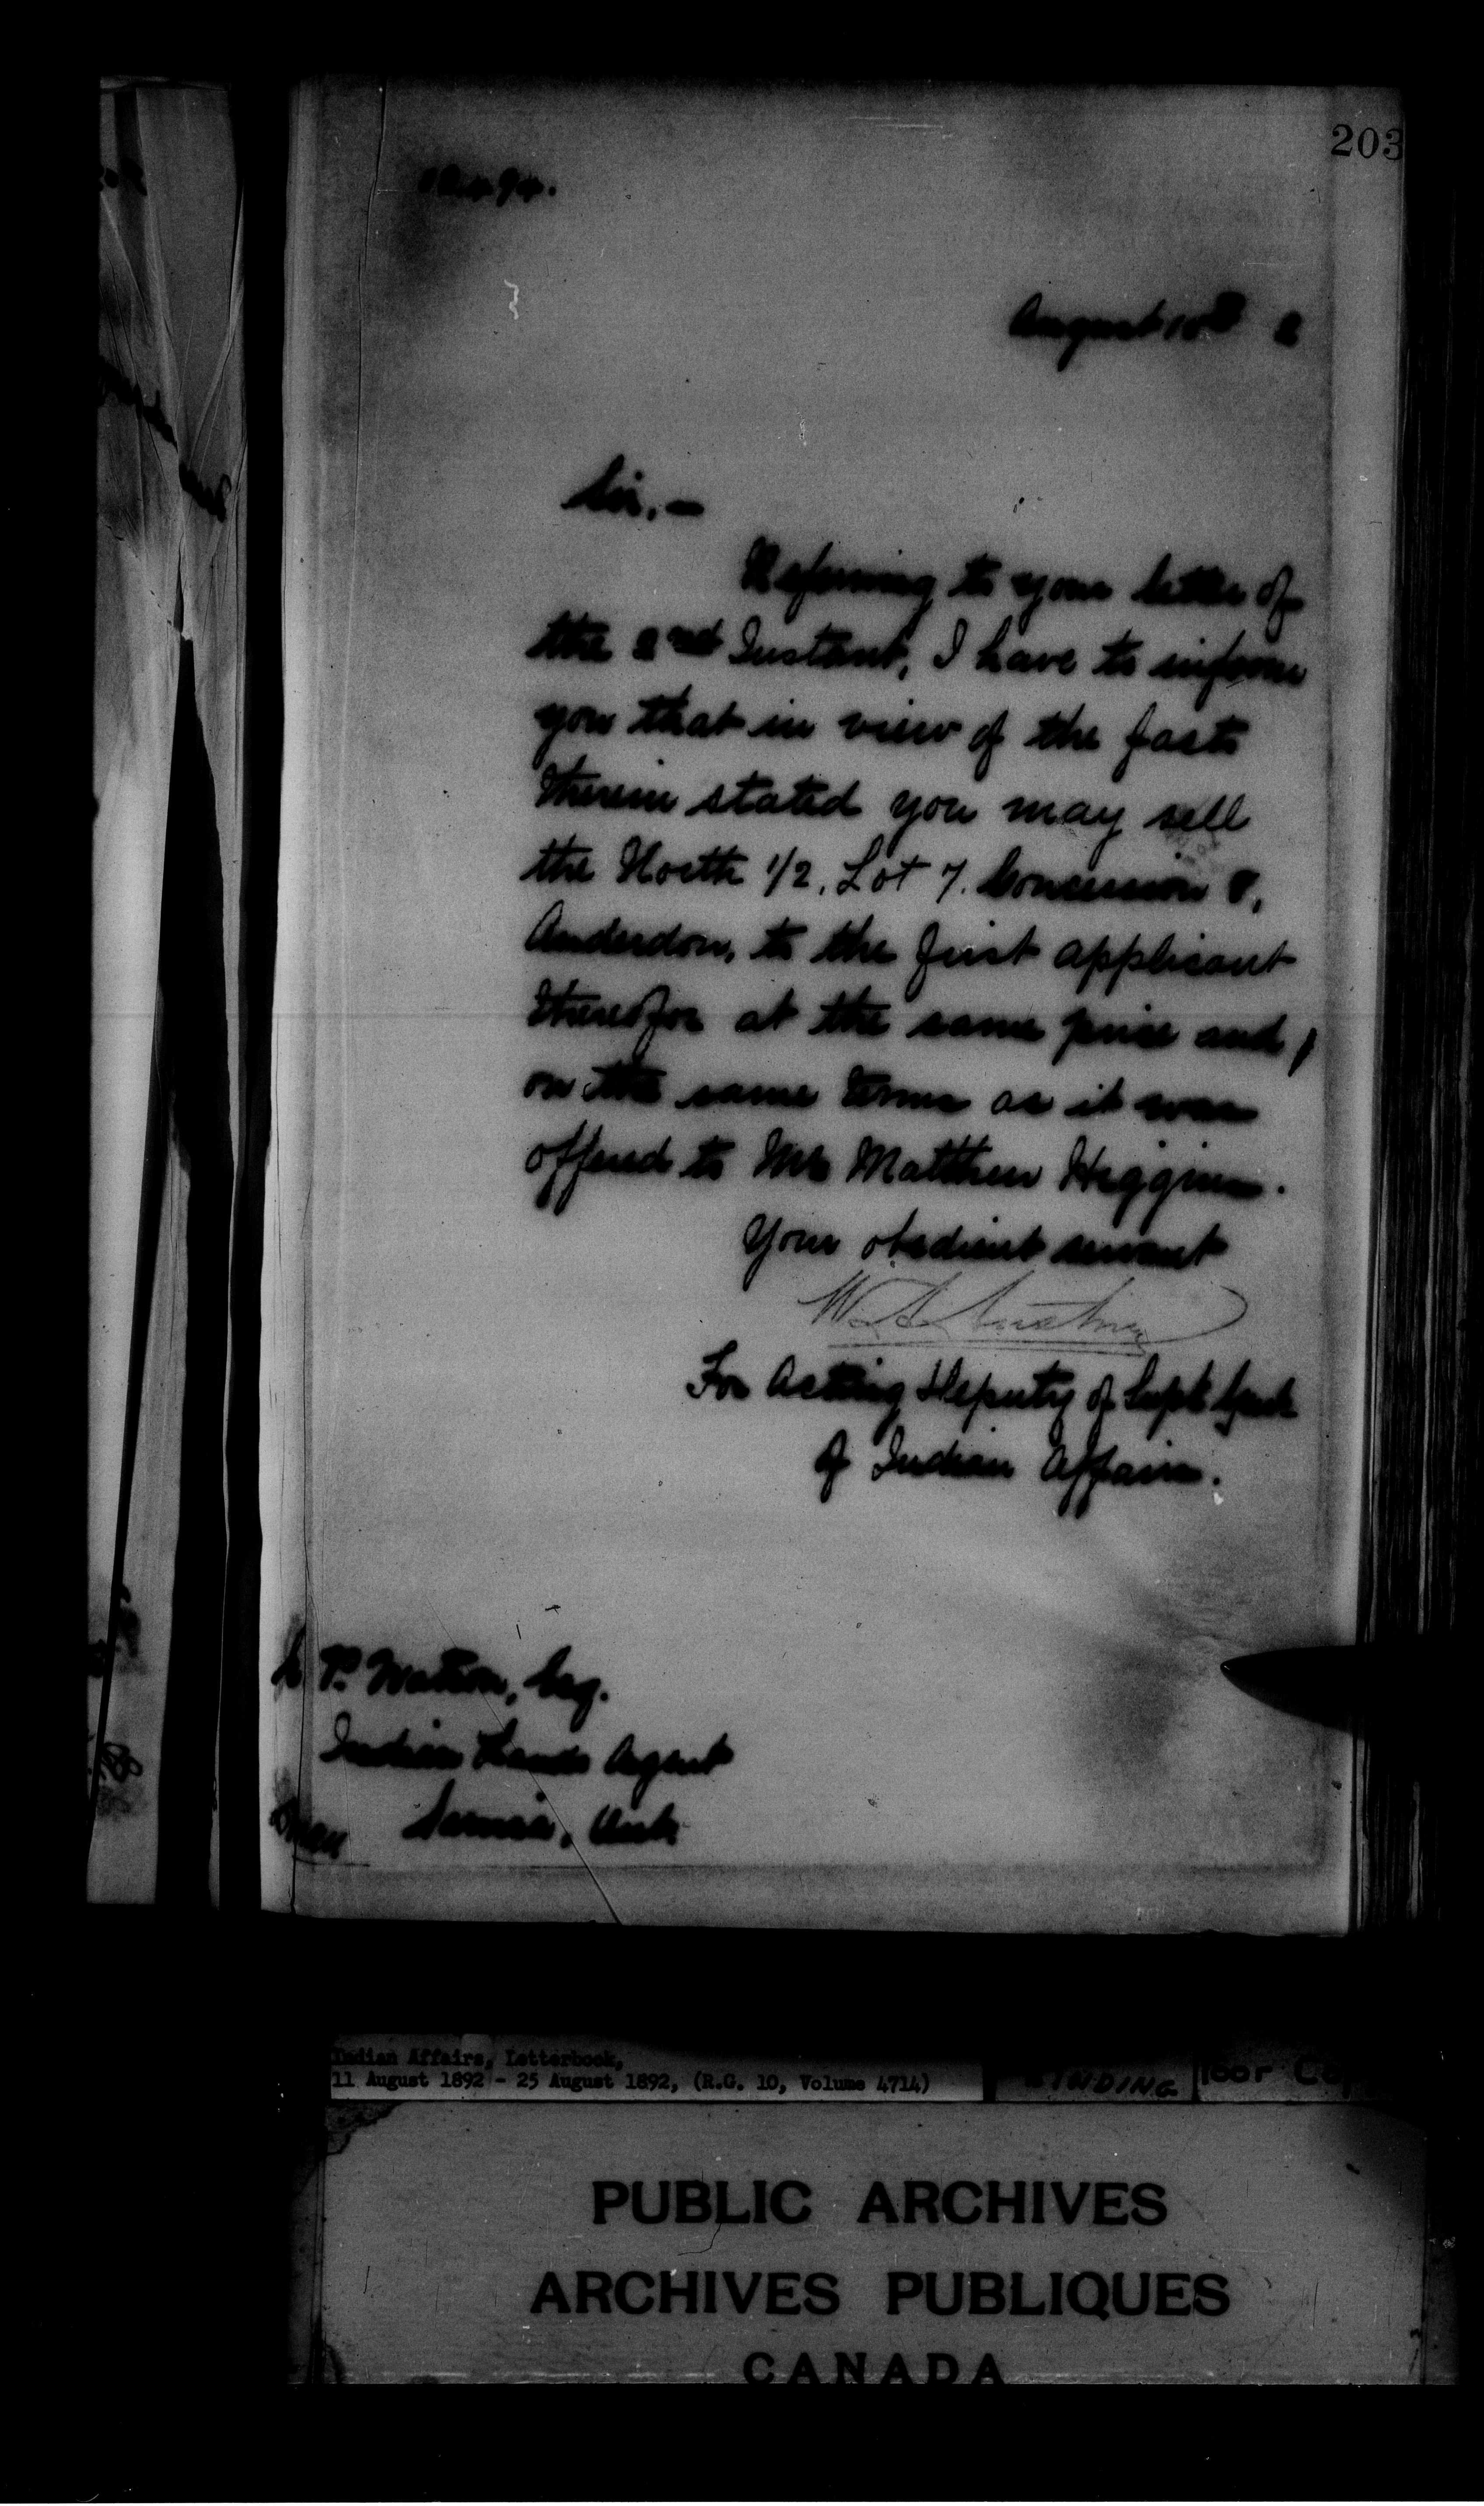 203
Sir,—
Referring to your letter of
the 2nd Instant, I have to inform
you that in view of the facts
therein stated you may sell
the North 1/2, Lot 7. Concession 8,
Anderdon, to the first applicant
therefor at the same price and
on the same terms as it was
offered to Mr Matthew Higgins.
Your obedient servant
For Acting Deputy of Supt Genl
of Indian Affairs.
P. Watson, Esq.
Indian Lands Agent
Sarnia, Ont.
Indian Affairs, Letterbook,
11 August 1892 - 25 August 1892, (R.G. 10, Volume 4714)
BINDING
Poor Cop
PUBLIC ARCHIVES
ARCHIVES PUBLIQUES
CANADA